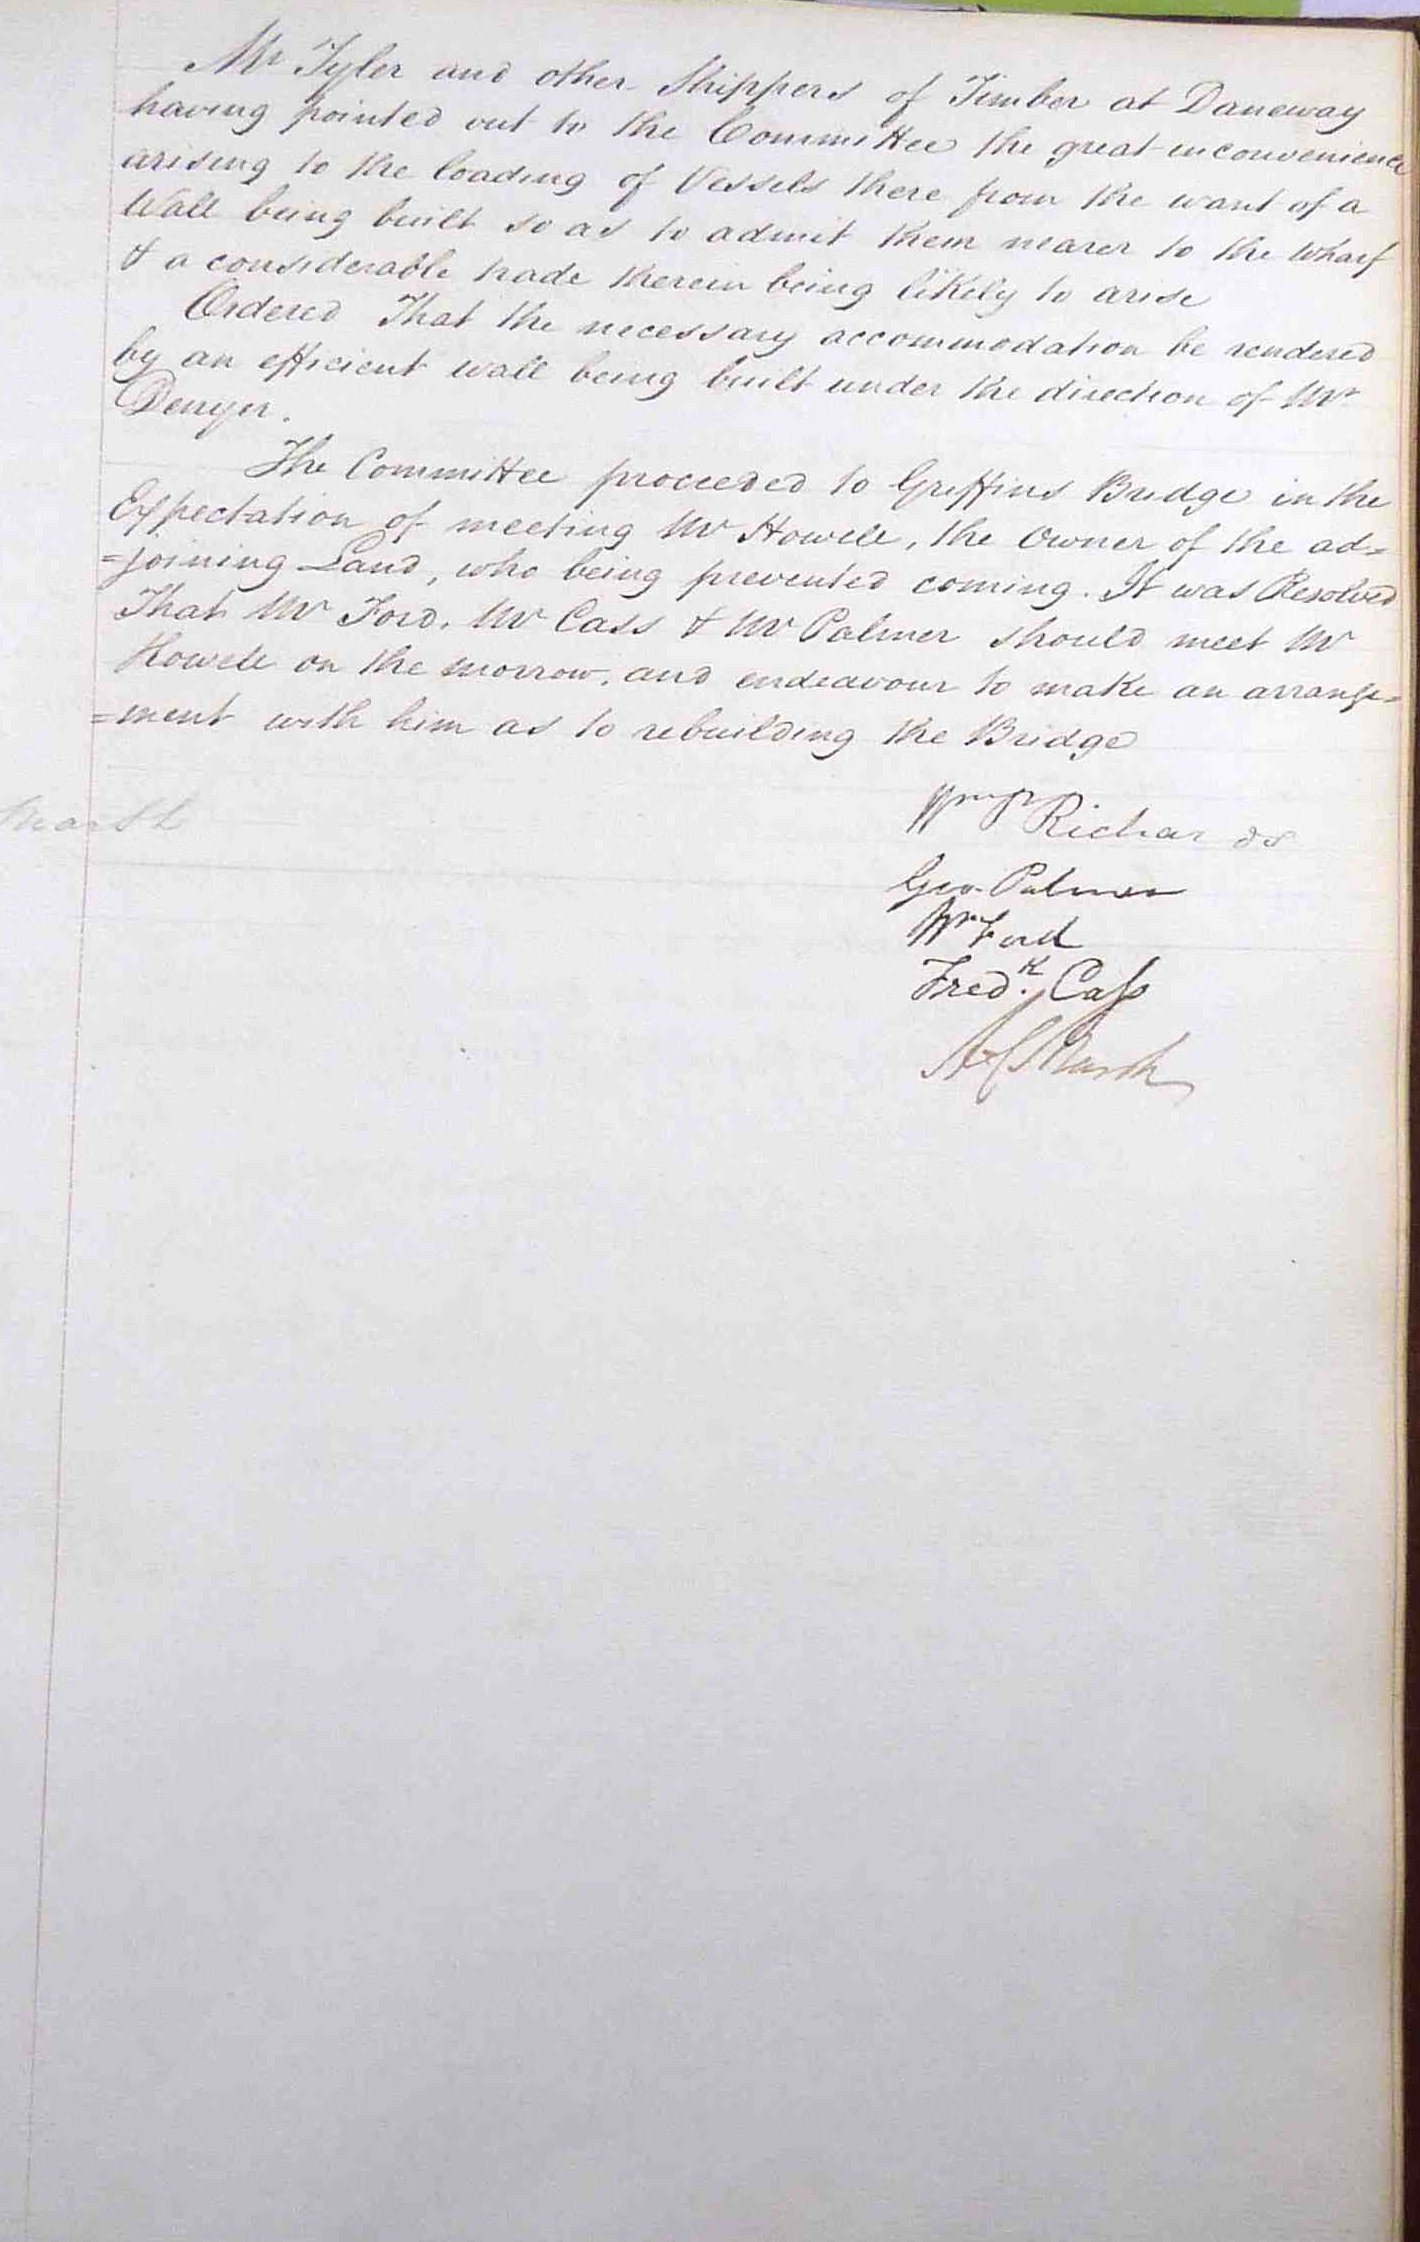 Mr Tyler and other Shippers of Timber at Daneway
having pointed out to the Committee the great inconvenience
arising to the loading of Vessels there from the want of a
Wall being built so as to admit them nearer to the Wharf
& a considerable trade therein being likely to arise
Ordered That the necessary accommodation be rendered
by an efficient wall being built under the direction of Mr
Denyer.
The Committee proceeded to Griffins Bridge in the
Expectation of meeting Mr Howell, the Owner of the ad=
=joining Land, who being prevented coming. It was Resolved
That Mr Ford, Mr Cass & Mr Palmer should meet Mr
Howell on the morrow, and endeavour to make an arrange=
=ment with him as to rebuilding the Bridge
Marsh
Richards
Geo. Palmer
Wm Ford
Fredk. Cass
Marsh